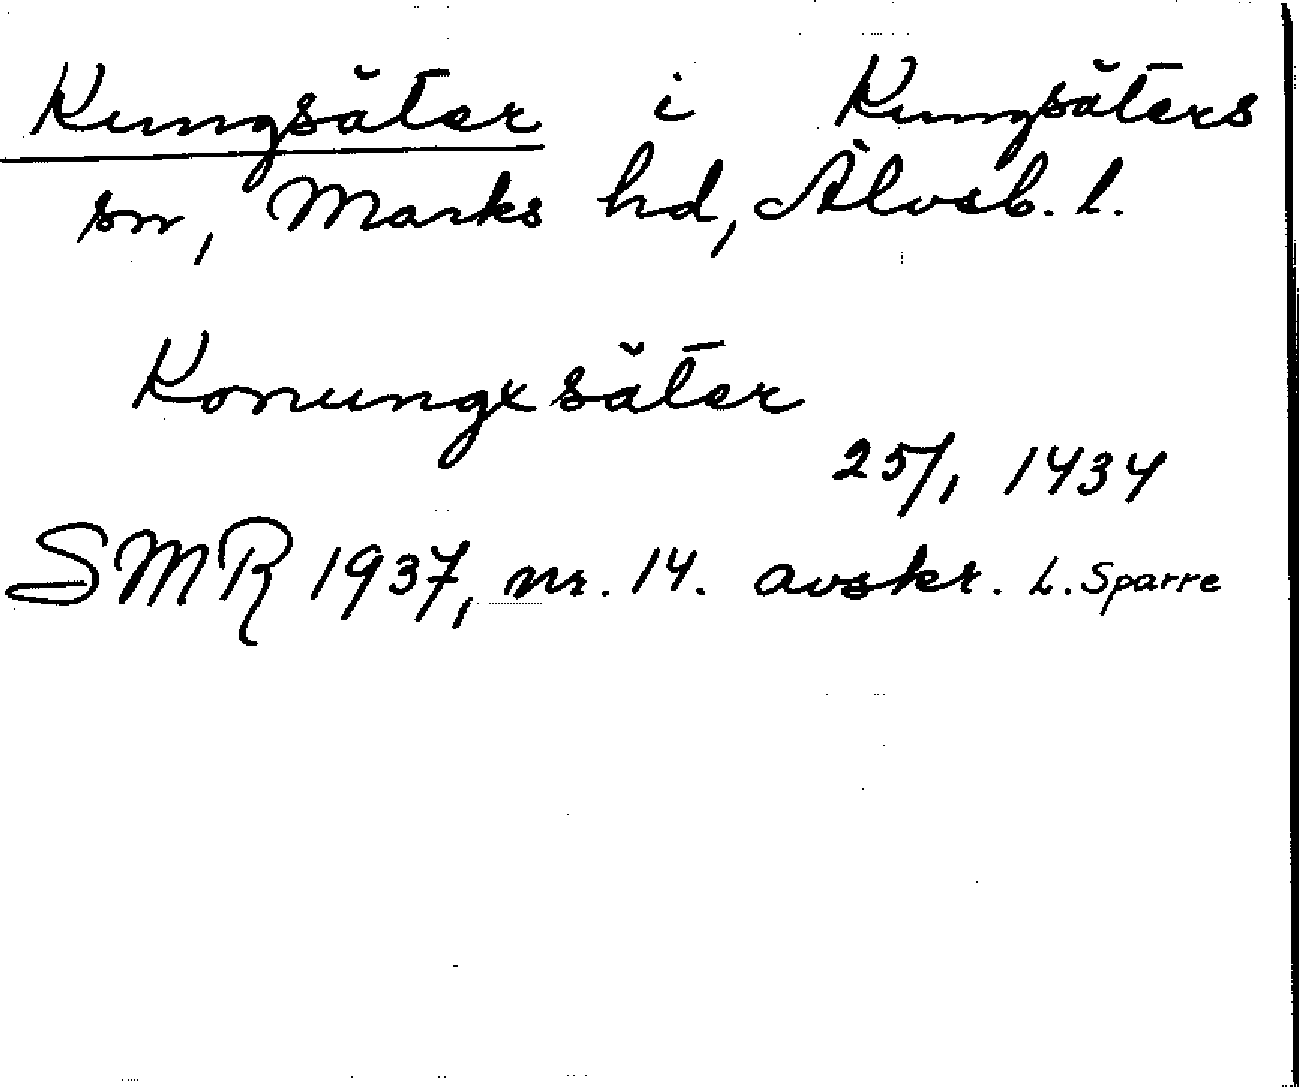 Kungsäter i Kungsäters
sn, Marks hd, Älvsb. l.
Konungxsäter
25/1 1434
SMR 1937, nr. 14. avskr. L. Sparre